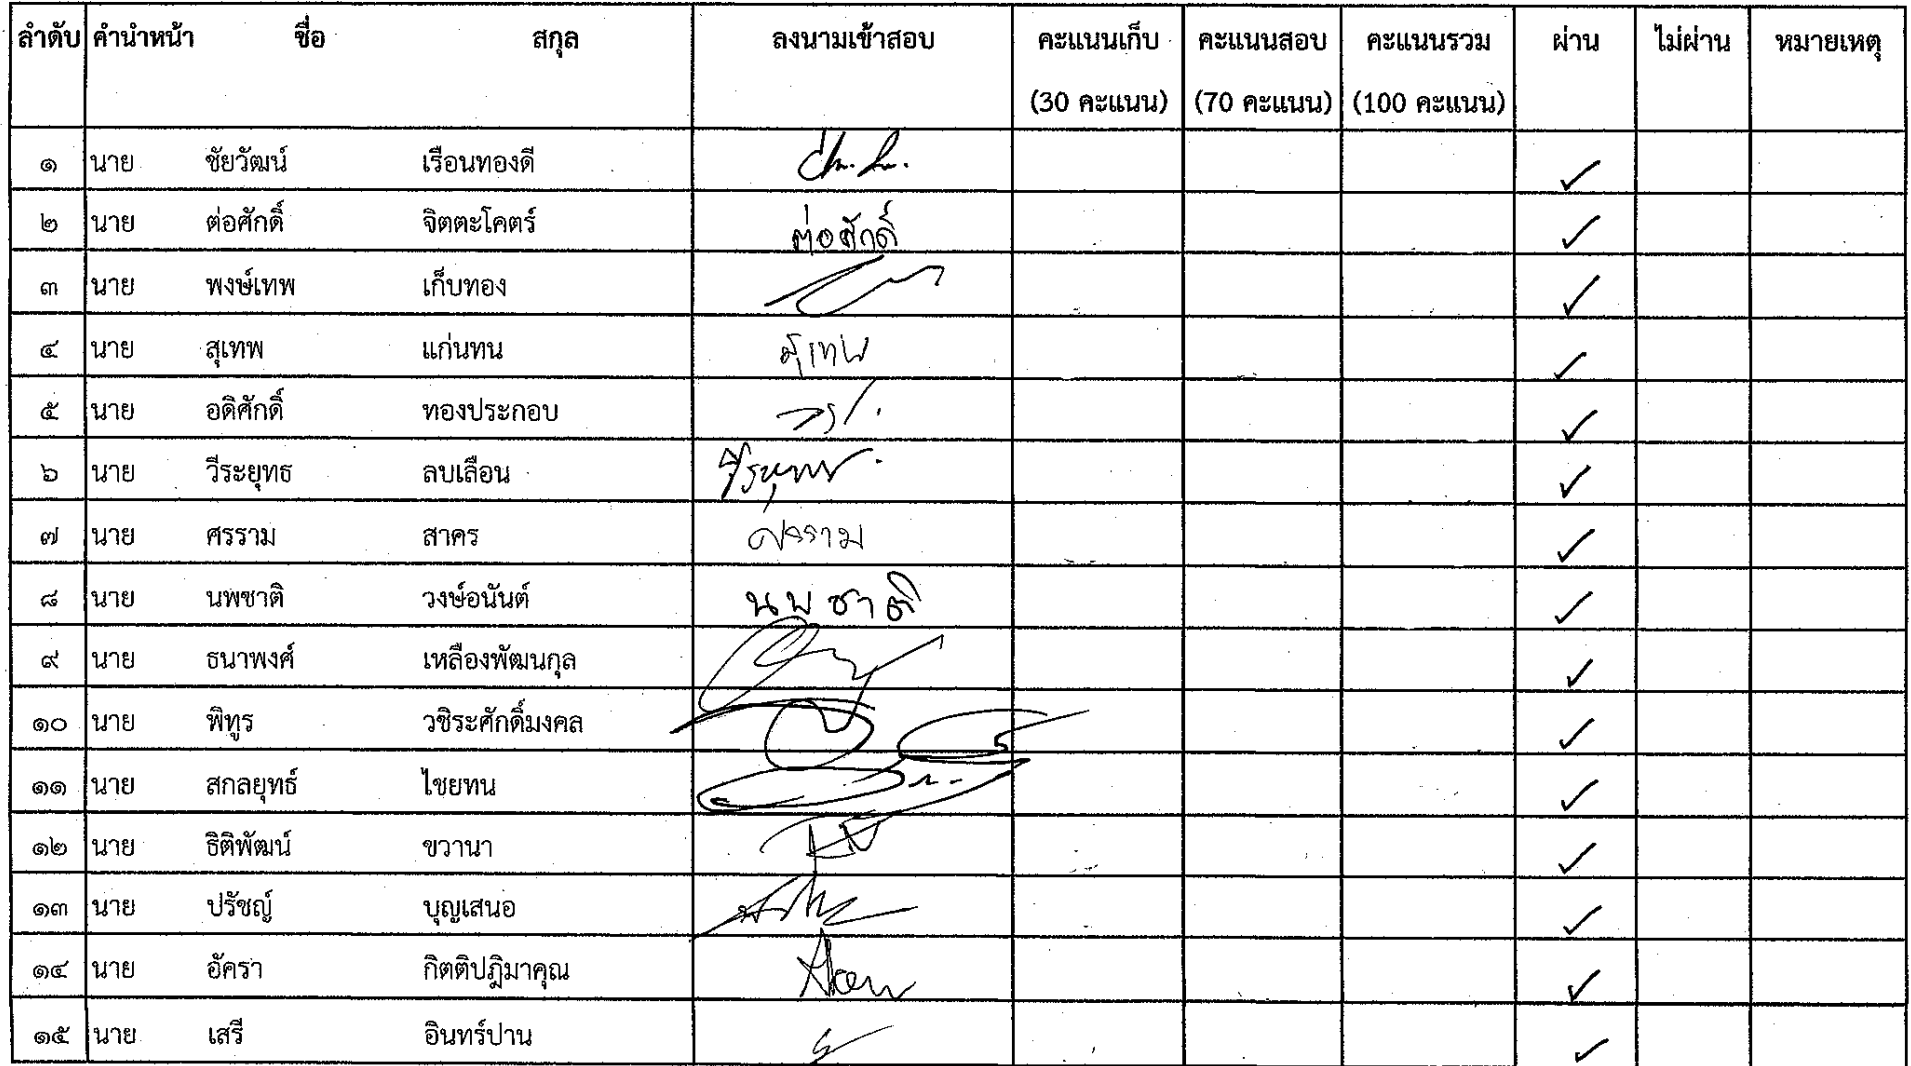 ลำดับ คำนำหน้า ชื่อ สกุล ลงนามเข้าสอบ คะแนนเก็บ คะแนนสอบ คะแนนรวม ผ่าน ไม่ผ่าน หมายเหตุ
(30 คะแนน) (70 คะแนน) (100 คะแนน)
๑ นาย ชัยวัฒน์ เรือนทองดี ✓
๒ นาย ต่อศักดิ์ จิตตะโคตร์ ต่อศักดิ์ ✓
๓ นาย พงษ์เทพ เก็บทอง ✓
๔ นาย สุเทพ แก่นทน สุเทพ ✓
๕ นาย อดิศักดิ์ ทองประกอบ ✓
๖ นาย วีระยุทธ ลบเลือน วีระยุทธ ✓
๗ นาย ศรราม สาคร ศรราม ✓
๘ นาย นพชาติ วงษ์อนันต์ นพชาติ ✓
๙ นาย ธนาพงศ์ เหลืองพัฒนกุล ✓
๑๐ นาย พิทูร วชิระศักดิ์มงคล ✓
๑๑ นาย สกลยุทธ์ ไชยทน ✓
๑๒ นาย ธิติพัฒน์ ขวานา ✓
๑๓ นาย ปรัชญ์ บุญเสนอ ✓
๑๔ นาย อัครา กิตติปฎิมาคุณ ✓
๑๕ นาย เสรี อินทร์ปาน ✓